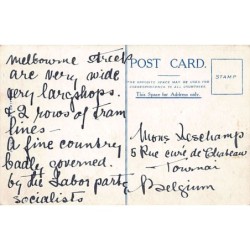 Melbourne Streets
are very wide
very large shops.
& 2 rows of tram
lines —
a fine country
badly governed.
by the Labor party
socialists
POST CARD.
THE ADDRESS ONLY TO BE
This Space for Address only.
STAMP
Mons Deschamps
5 Rue curé de Chateau
Tournai
Belgium